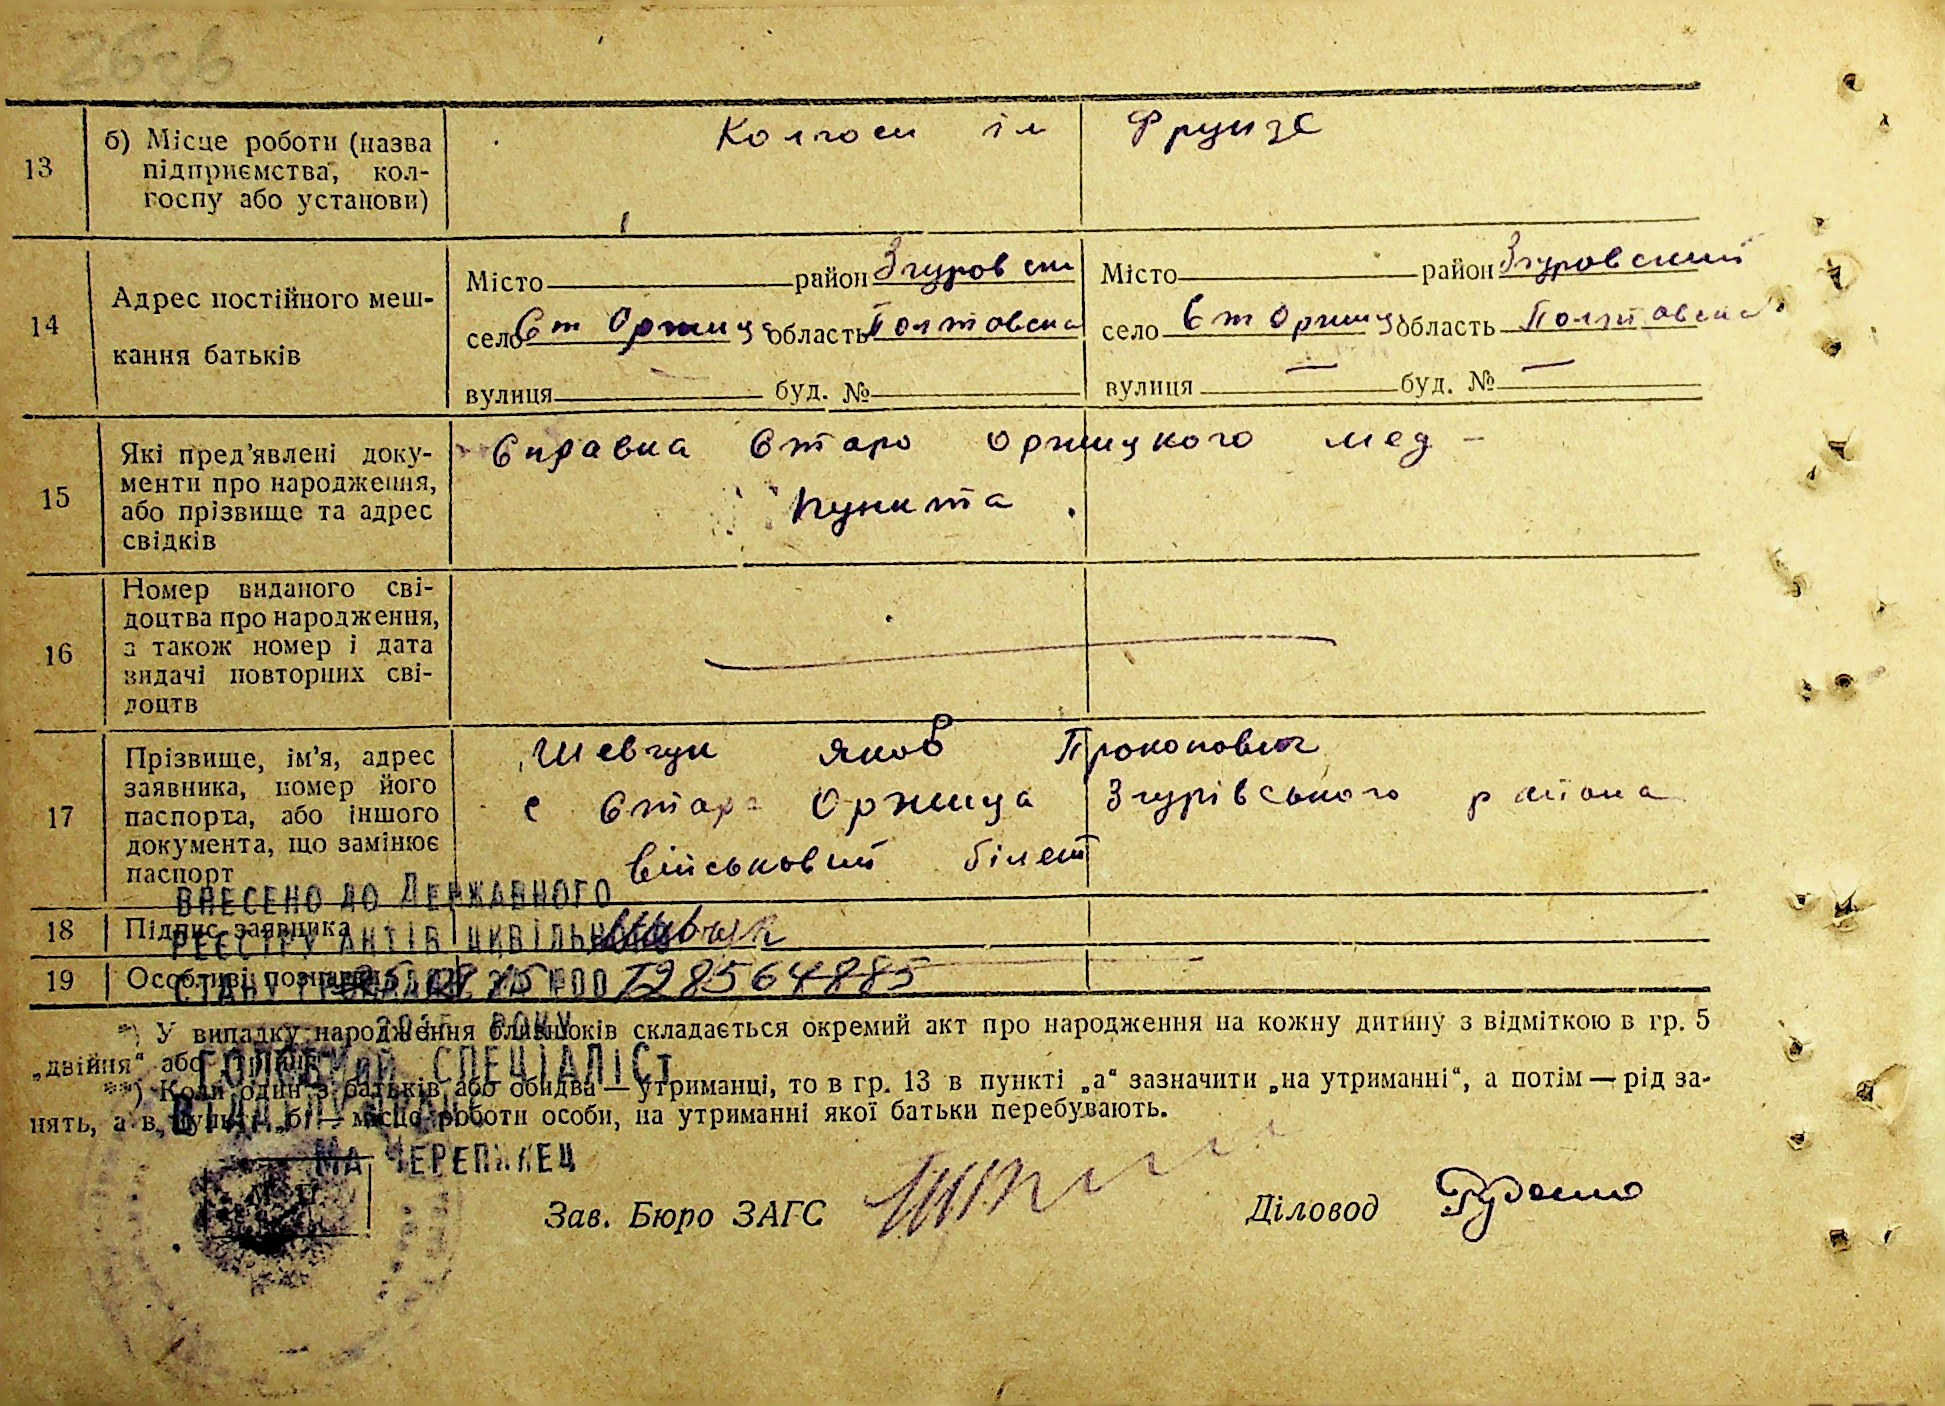 13 б) Місце роботи (назва Колгосп ім Фрунзе
підприємства, кол-
госпу або установи)
14 Адрес постійного меш-
кання батьків
Місто район Згуровск Місто район Згуровский
село Ст Оржица область Полтовска село Ст Оржица область Полтовска
вулиця — буд. № вулиця — буд. № —
15 Які пред'явлені доку-
менти про народження,
або прізвище та адрес
свідків
Справка Старо Оржицкого мед-
пункта.
16 Номер виданого сві-
доцтва про народження,
а також номер і дата
видачі повторних сві-
доцтв
17 Прізвище, ім'я, адрес
заявника, номер його
паспорта, або іншого
документа, що замінює
паспорт
Шевчук Яков Прокопович
с Стара Оржица Згурівського района
військовий білет
ВНЕСЕНО ДО ДЕРЖАВНОГО
18 Підпис заявника Шевчук
РЕЄСТРУ АКТІВ ЦИВІЛЬНОГО
19 Особливі познач
СТАНУ ГРОМАДЯН ЗА №00 128564885
РОКУ
*) У випадку народження близнюків складається окремий акт про народження на кожну дитину з відміткою в гр. 5
„двійня“ або
ГОЛОВНИЙ СПЕЦІАЛІСТ
**) Коли один з батьків або обидва — утриманці, то в гр. 13 в пункті „а“ зазначити „на утриманні“, а потім — рід за-
нять, а в пункті „б“ — місце роботи особи, на утриманні якої батьки перебувають.
ЧЕРЕПИНЕЦ
М. П.
Зав. Бюро ЗАГС Діловод Руденко